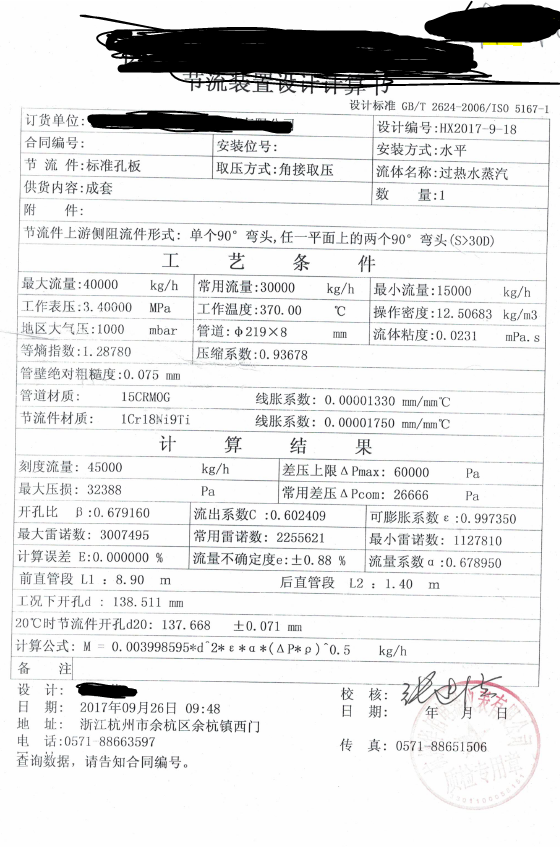 节流装置设计计算书
设计标准 GB/T 2624-2006/ISO 5167-1
订货单位: 设计编号:HX2017-9-18
合同编号: 安装位号: 安装方式:水平
节 流 件:标准孔板 取压方式:角接取压 流体名称:过热水蒸汽
供货内容:成套 数 量:1
附 件:
节流件上游侧阻流件形式: 单个90° 弯头,任一平面上的两个90° 弯头(S>30D)
工 艺 条 件
最大流量:40000 kg/h 常用流量:30000 kg/h 最小流量:15000 kg/h
工作表压:3.40000 MPa 工作温度:370.00 ℃ 操作密度:12.50683 kg/m3
地区大气压:1000 mbar 管道:φ219×8 mm 流体粘度:0.0231 mPa.s
等熵指数:1.28780 压缩系数:0.93678
管壁绝对粗糙度:0.075 mm
管道材质: 15CRMOG 线胀系数: 0.00001330 mm/mm℃
节流件材质: 1Cr18Ni9Ti 线胀系数: 0.00001750 mm/mm℃
计 算 结 果
刻度流量: 45000 kg/h 差压上限ΔPmax: 60000 Pa
最大压损: 32388 Pa 常用差压ΔPcom: 26666 Pa
开孔比 β:0.679160 流出系数C :0.602409 可膨胀系数ε:0.997350
最大雷诺数: 3007495 常用雷诺数: 2255621 最小雷诺数: 1127810
计算误差 E:0.000000 % 流量不确定度e:±0.88 % 流量系数α:0.678950
前直管段 L1 : 8.90 m 后直管段 L2 : 1.40 m
工况下开孔d : 138.511 mm
20℃时节流件开孔d20: 137.668 ±0.071 mm
计算公式: M = 0.003998595*d^2*ε*α*(ΔP*ρ)^0.5 kg/h
备 注
设 计: 校 核:
日 期: 2017年09月26日 09:48 日 期: 年 月 日
地 址: 浙江杭州市余杭区余杭镇西门
电 话:0571-88663597 传 真: 0571-88651506
查询数据,请告知合同编号。
质检专用章